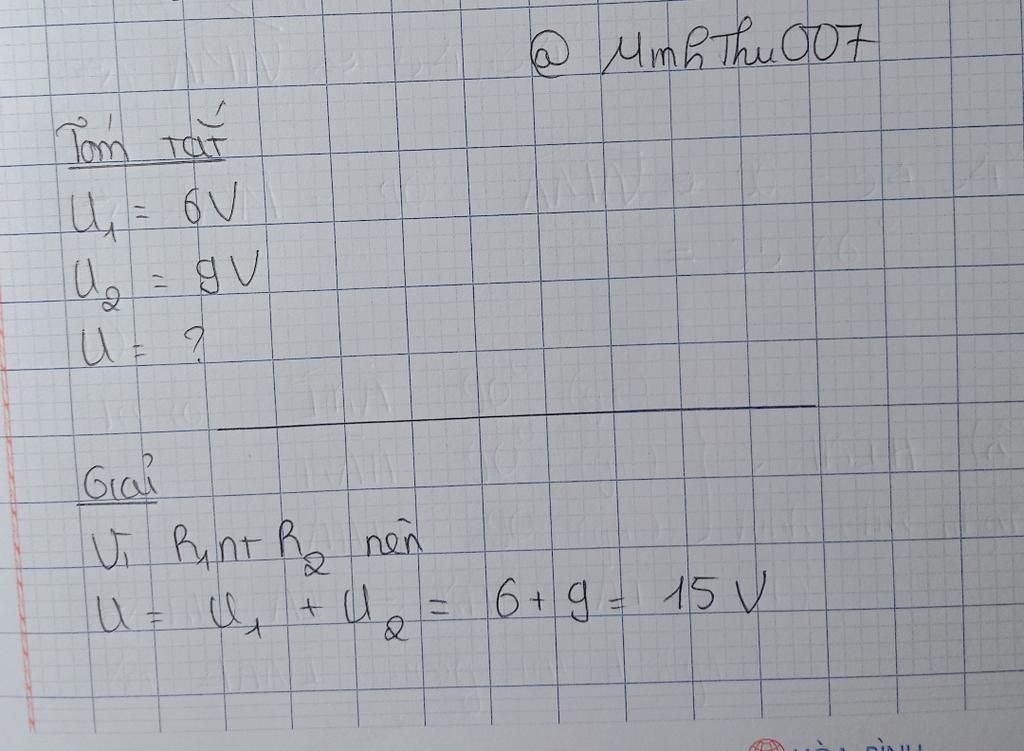 @ MinhThu007
Tóm tắt
U₁ = 6V
U₂ = 9V
U = ?
Giải
Vì R₁ nt R₂ nên
U = U₁ + U₂ = 6 + 9 = 15 V
HÒA BÌNH